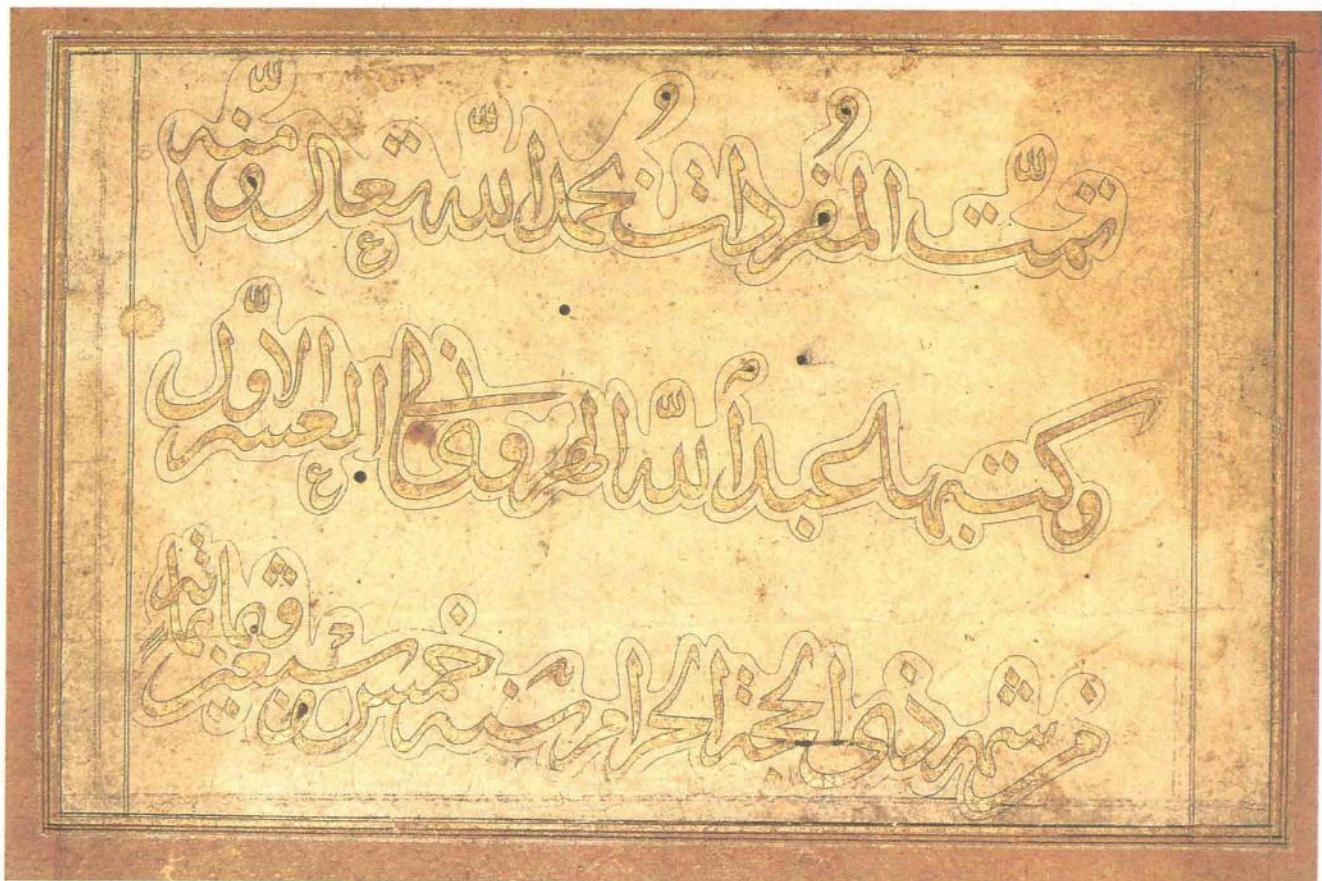 تمت المفردات بحمد الله تعالى ومنه
وكتبها عبد الله الهروي في العشر الاول
من شهر ذي الحجة الحرام سنة خمس وسبعين وثمانمائة